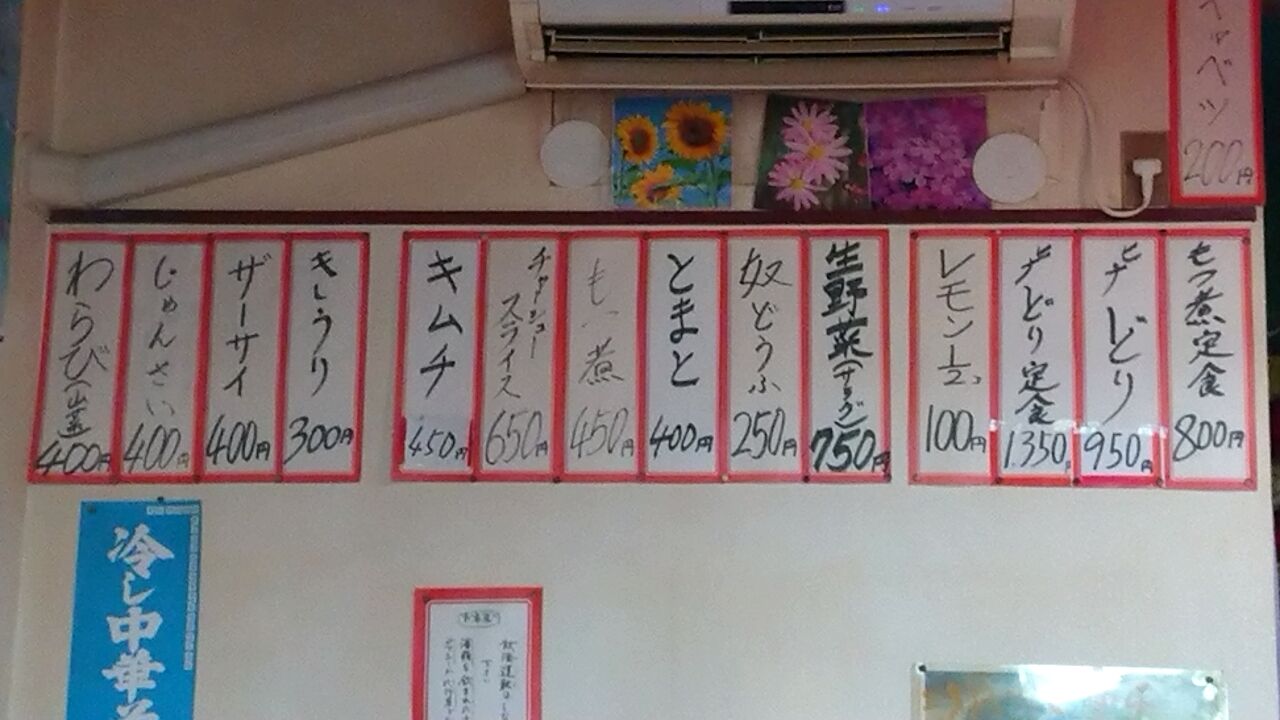 キャベツ
200円
もつ煮定食
800円
ヒナどり
950円
ヒナどり定食
1.350円
レモン1/2コ
100円
生野菜(サラダ)
750円
奴どうふ
250円
とまと
400円
もつ煮
450円
チャーシュー
スライス
650円
キムチ
450円
きゅうり
300円
ザーサイ
400円
じゅんさい
400円
わらび(山菜)
400円
冷し中華